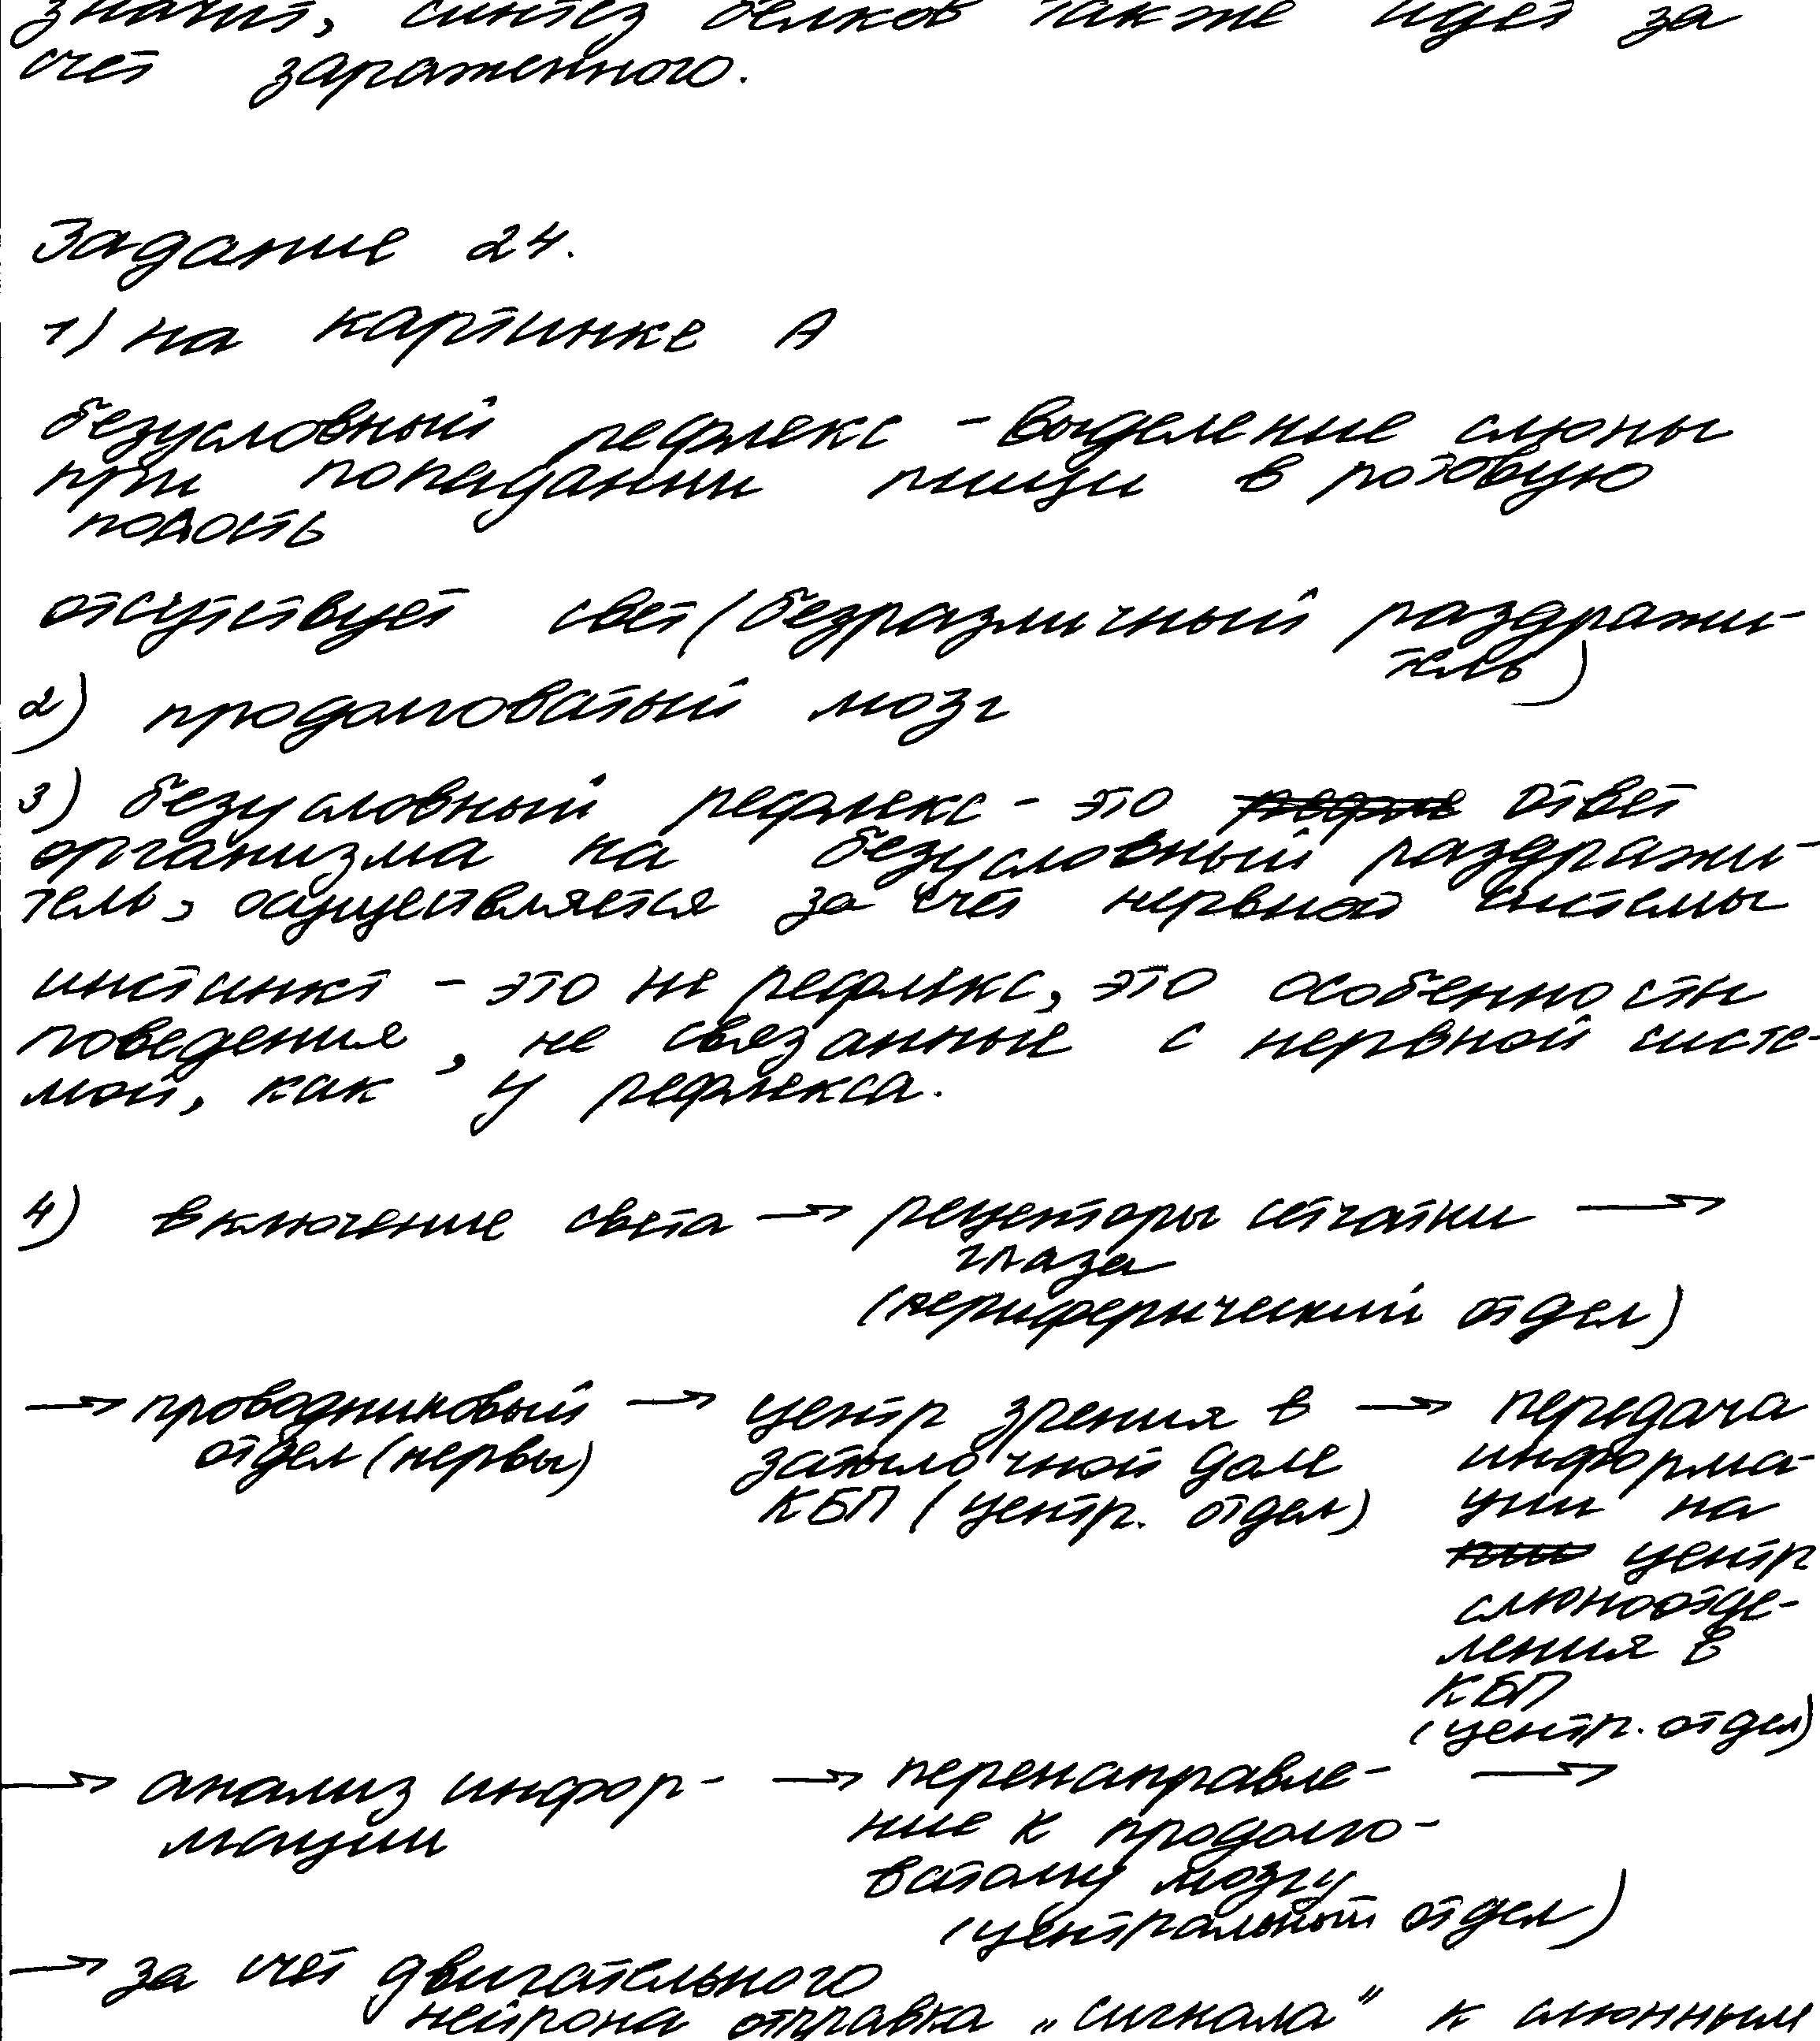 значит, синтез белков также идет за
счет зараженного.
Задание 24.
1) на картинке А
безусловный рефлекс - выделение слюны
при попадании пищи в ротовую
полость
отсутствует свет (безразличный раздражи-
тель)
2) продолговатый мозг
3) безусловный рефлекс - это ответ
организма на безусловный раздражи-
тель, осуществляется за счет нервной системы
инстинкт - это не рефлекс, это особенности
поведения, не связанные с нервной систе-
мой, как у рефлекса.
4) включение света → рецепторы сетчатки →
глаза
(периферический отдел)
→ проводниковый
отдел (нервы)
→ центр зрения в
затылочной доле
КБП (центр. отдел)
→ передача
информа-
ции на
центр
слюноотде-
ления в
КБП
(центр. отдел)
→ анализ инфор-
мации
→ перенаправле-
ние к продолго-
ватому мозгу
(центральный отдел)
→
→ за счет двигательного
нейрона отправка „сигнала" к слюнным